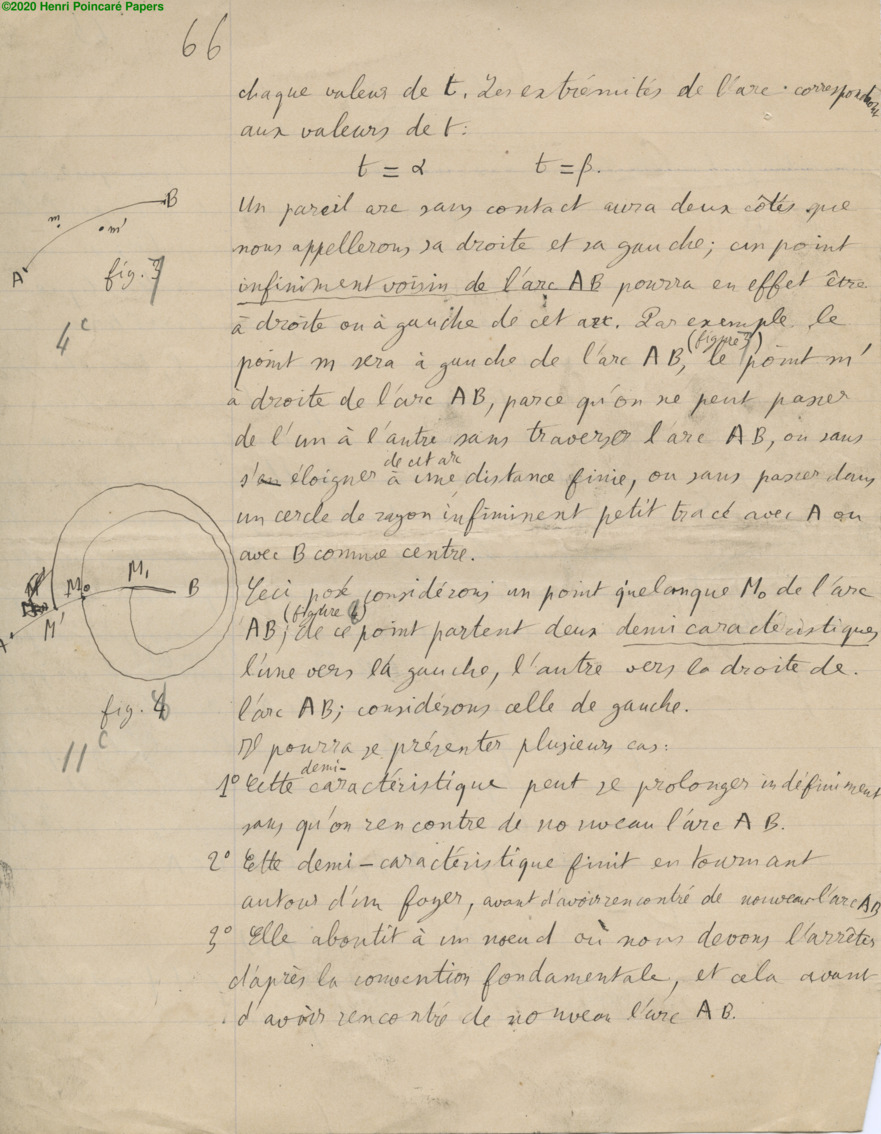 ©2020 Henri Poincaré Papers
66
chaque valeur de t. Les extrémités de l'arc correspondent
aux valeurs de t:
t = α t = β.
Un pareil arc sans contact aura deux côtés que
nous appellerons sa droite et sa gauche; un point
infiniment voisin de l'arc AB pourra en effet être
à droite ou à gauche de cet arc. Par exemple le
(figure 7)
point m sera à gauche de l'arc AB, le point m'
à droite de l'arc AB, parce qu'on ne peut passer
de l'un à l'autre sans traverser l'arc AB, ou sans
de cet arc
s'en éloigner à une distance finie, ou sans passer dans
un cercle de rayon infiniment petit tracé avec A ou
avec B comme centre.
Ceci posé considérons un point quelconque M₀ de l'arc
(figure 8)
AB; de ce point partent deux demi caractéristiques
l'une vers la gauche, l'autre vers la droite de
l'arc AB; considérons celle de gauche.
Il pourra se présenter plusieurs cas:
demi-
1° Cette caractéristique peut se prolonger indéfiniment
sans qu'on rencontre de nouveau l'arc AB.
2° Cette demi-caractéristique finit en tournant
autour d'un foyer, avant d'avoir rencontré de nouveau l'arc AB
3° Elle aboutit à un noeud où nous devons l'arrêter
d'après la convention fondamentale, et cela avant
d'avoir rencontré de nouveau l'arc AB.
B
m
m'
A
fig. 7
4c
M₁
M₀
B
M'
A
fig. 8
11c